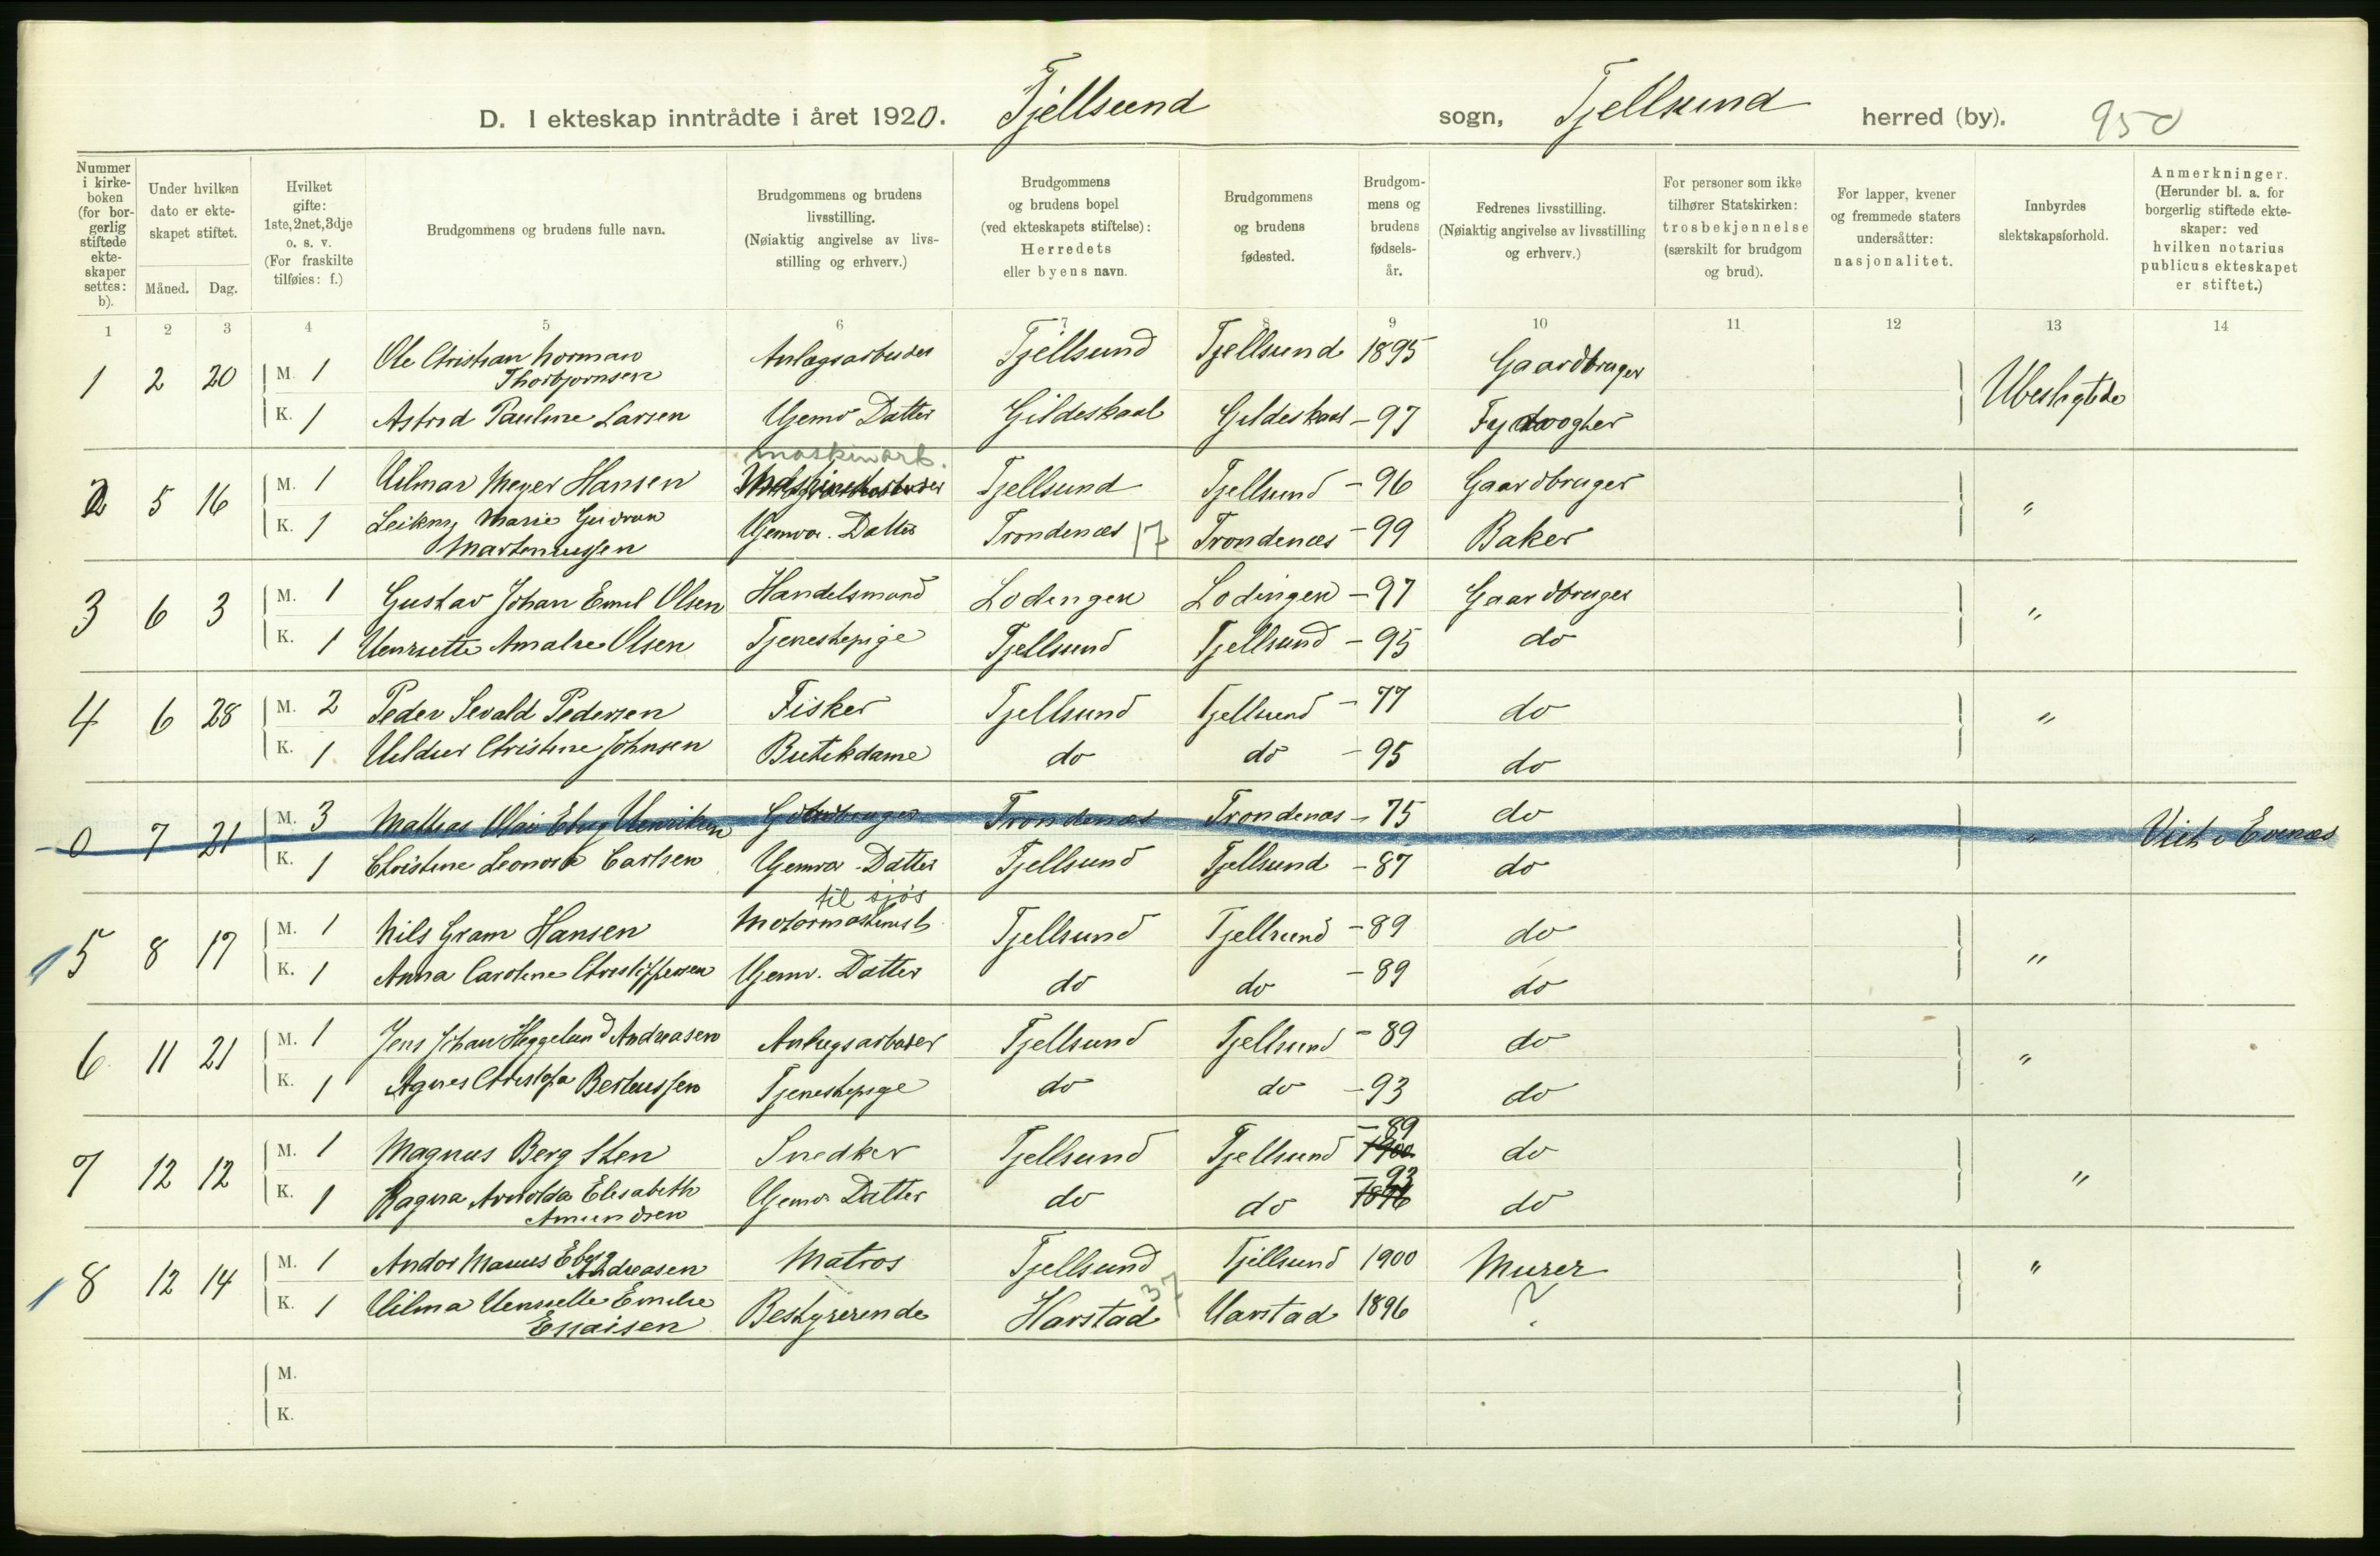 D. I ekteskap inntrådte i året 1920. Tjellsund sogn, Tjellsund herred (by). 950
Nummer i kirkeboken (for borgerlig stiftede ekteskaper settes: b).
Under hvilken dato er ekteskapet stiftet. Måned. Dag.
Hvilket gifte: 1ste, 2net, 3dje o. s. v. (For fraskilte tilføies: f.)
Brudgommens og brudens fulle navn.
Brudgommens og brudens livsstilling. (Nøiaktig angivelse av livsstilling og erhverv.)
Brudgommens og brudens bopel (ved ekteskapets stiftelse): Herredets eller byens navn.
Brudgommens og brudens fødested.
Brudgommens og brudens fødselsår.
Fedrenes livsstilling. (Nøiaktig angivelse av livsstilling og erhverv.)
For personer som ikke tilhører Statskirken: trosbekjennelse (særskilt for brudgom og brud).
For lapper, kvener og fremmede staters undersåtter: nasjonalitet.
Innbyrdes slektskapsforhold.
Anmerkninger. (Herunder bl. a. for borgerlig stiftede ekteskaper: ved hvilken notarius publicus ekteskapet er stiftet.)
1 2 3 4 5 6 7 8 9 10 11 12 13 14
1 2 20 M. 1 Ole Christian Norman Thorbjørnsen Anlægsarbeider Tjellsund Tjellsund 1895 Gaardbruger Ubeslegtede
K. 1 Astrid Pauline Larsen Hjemv Datter Gildeskaal Gildeskaal - 97 Fyrvogter
maskinarb.
2 5 16 M. 1 Hilmar Meyer Hansen Tjellsund Tjellsund - 96 Gaardbruger "
K. 1 Leikny Marie Gudrun Marteniussen Hjemva. Datter Trondenæs 17 Trondenæs - 99 Baker
3 6 3 M. 1 Gustav Johan Emil Olsen Handelsmand Lodingen Lodingen - 97 Gaardbruger "
K. 1 Henriette Amalie Olsen Tjenestepige Tjellsund Tjellsund - 95 do
4 6 28 M. 2 Peder Sevald Pedersen Fisker Tjellsund Tjellsund - 77 do "
K. 1 Hildur Christine Johnsen Butikdame do do - 95 do
0 7 21 M. 3 Mathias Olai Ebug Henriksen Gårdbruger Trondenæs Trondenæs - 75 do " Viet i Evenæs
K. 1 Christine Leonora Carlsen Hjemva. Datter Tjellsund Tjellsund - 87 do
til sjøs
5 8 17 M. 1 Nils Gram Hansen Motormaskinist Tjellsund Tjellsund - 89 do "
K. 1 Anna Caroline Christiffersen Hjemv. Datter do do - 89 do
6 11 21 M. 1 Jens Johan Heggelund Andreasen Anlegsarbeider Tjellsund Tjellsund - 89 do "
K. 1 Agnes Christofa Berteussen Tjenestepige do do - 93 do
- 89
7 12 12 M. 1 Magnus Berg Sten Snedker Tjellsund Tjellsund 1900 do "
- 93
K. 1 Ragna Arnolda Elisabeth Amundsen Hjemv Datter do do 1896 do
8 12 14 M. 1 Andor Marius Ebeg Andreasen Matros Tjellsund Tjellsund 1900 Murer "
K. 1 Hilma Henriette Emilie Essaisen Bestyrerinde Harstad 37 Harstad 1896 ?
M.
K.